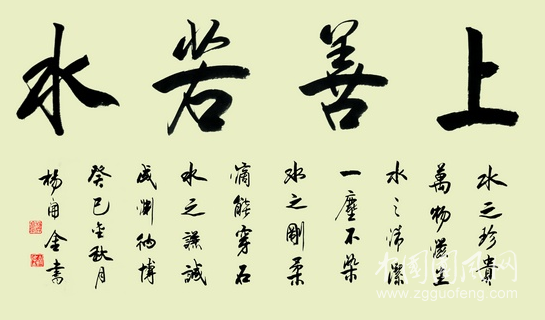 上善若水
水之珍貴
萬物滋生
水之清潔
一塵不染
水之剛柔
滴能穿石
水之謙誠
成淵納博
癸巳金秋月
楊金書
中国国风网
www.zgguofeng.com